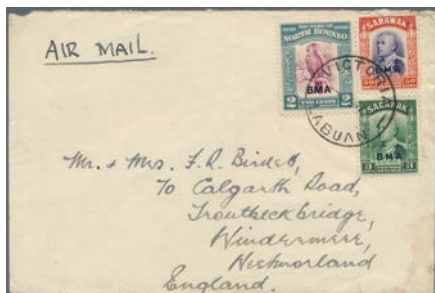 AIR MAIL.
NORTH BORNEO
BMA
2 TWO CENTS 2
SARAWAK
BMA
50 50
SARAWAK
BMA
VICTORIA
LABUAN
Mr. & Mrs. F. R. Birdett,
70 Calgarth Road,
Troutbeckbridge,
Windermere,
Westmorland
England.